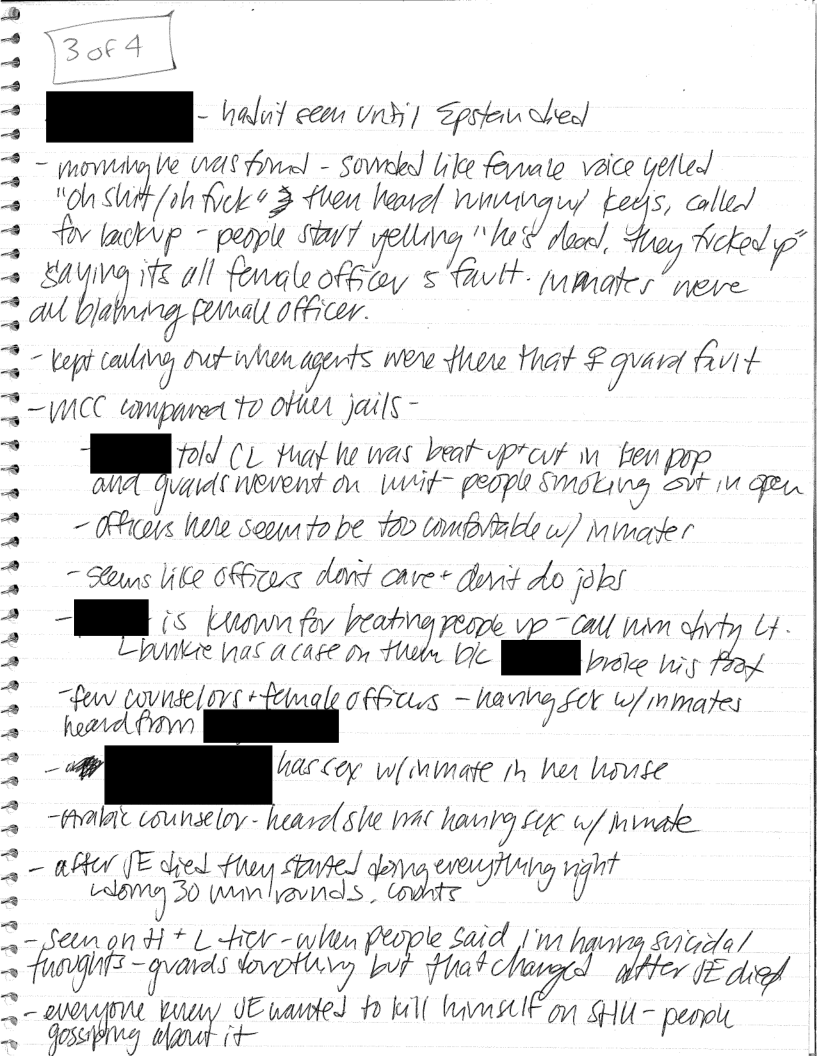 3 of 4
- hadn't seen until Epstein died
- morning he was found - sounded like female voice yelled
"oh shit/oh fuck" then heard running w/ keys, called
for backup - people start yelling "he's dead, they fucked up"
saying its all female officer's fault. inmates were
all blaming female officer.
- kept calling out when agents were there that ♀ guard fault
- MCC compared to other jails -
- told CL that he was beat up + cut in Gen pop
and guards weren't on unit - people smoking out in open
- officers here seem to be too comfortable w/ inmates
- seems like officers don't care + don't do jobs
- is known for beating people up - call him dirty Lt.
bunkie has a case on them b/c broke his foot
- few counselors + female officers - having sex w/ inmates
heard from
- has sex w/ inmate in her house
- Arabic counselor - heard she was having sex w/ inmate
- after JE died they started doing everything right
doing 30 min rounds, counts
- seen on H + L tier - when people said I'm having suicidal
thoughts - guards do nothing but that changed after JE died
- everyone knew JE wanted to kill himself on SHU - people
gossiping about it